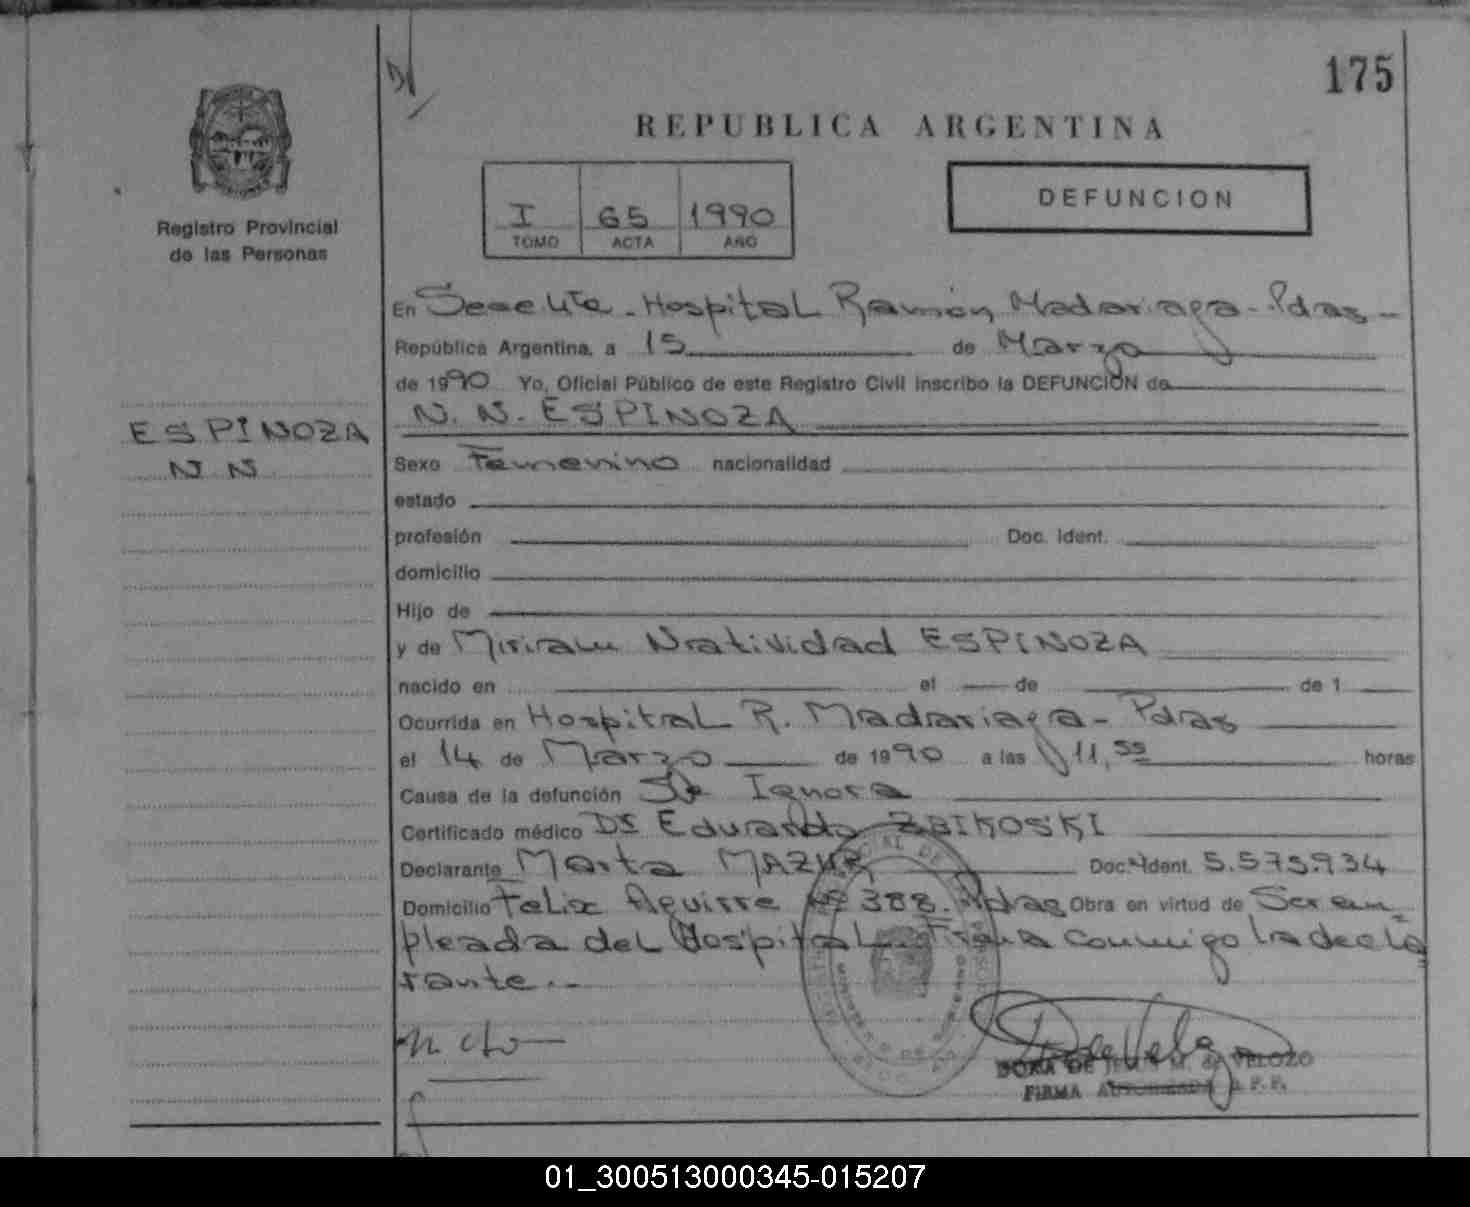 175
REPUBLICA ARGENTINA
Registro Provincial
de las Personas
I 65 1990
TOMO ACTA AÑO
DEFUNCION
En Seccute. Hospital Ramón Madariaga - Pdas -
República Argentina, a 15 de Marzo
de 1990 Yo, Oficial Público de este Registro Civil inscribo la DEFUNCIÓN de
N. N. ESPINOZA
ESPINOZA
N N
Sexo Femenino nacionalidad
estado
profesión Doc. Ident.
domicilio
Hijo de
y de Miriam Natividad ESPINOZA
nacido en el de de 1
Ocurrida en Hospital R. Madariaga - Pdas
el 14 de Marzo de 1990 a las 11,55 horas
Causa de la defunción Se Ignora
Certificado médico Dr Eduardo ZBIKOSKI
Declarante Marta MAZUR Doc. Ident. 5.575.934
Domicilio Felix Aguirre Nº 388. Pdas Obra en virtud de Ser em-
pleada del Hospital. Firma conmigo la decla
rante.-
DORA DE JESUS M. de VELOZO
FIRMA AUTORIZADA
01_300513000345-015207